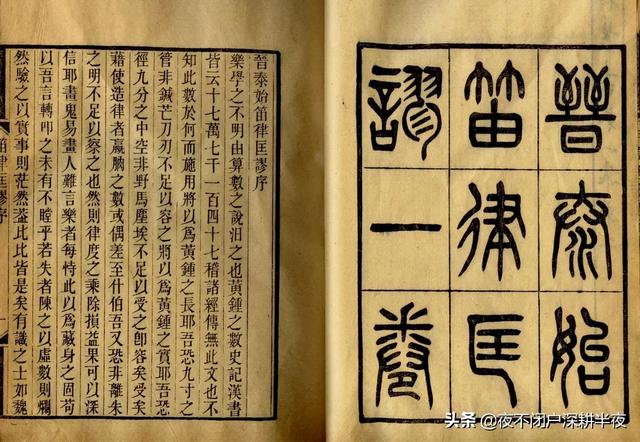 晉泰始
笛律匡
謬一卷
晉泰始笛律匡謬序
樂學之不明由算數之說汨之也黃鍾之數史記漢書
皆云十七萬七千一百四十七稽諸經傳無此文也不
知此數於何而施用將以爲黃鍾之長耶吾恐九寸之
管非鍼芒刀刃不足以容之將以爲黃鍾之實耶吾恐
徑九分之中空非野馬塵埃不足以受之卽容矣受矣
藉使造律者贏朒之數或偶差至什伯吾又恐非離朱
之明不足以察之也然則律度之乘除損益果可以深
信耶畫鬼易畫人難言樂者每恃此以爲藏身之固苟
以吾言轉叩之未有不瞠乎若失者陳之以虛數則爛
然驗之以實事則茫然葢比比皆是矣有識之士如魏
笛律匡謬序
头条 @夜不闭户深耕半夜